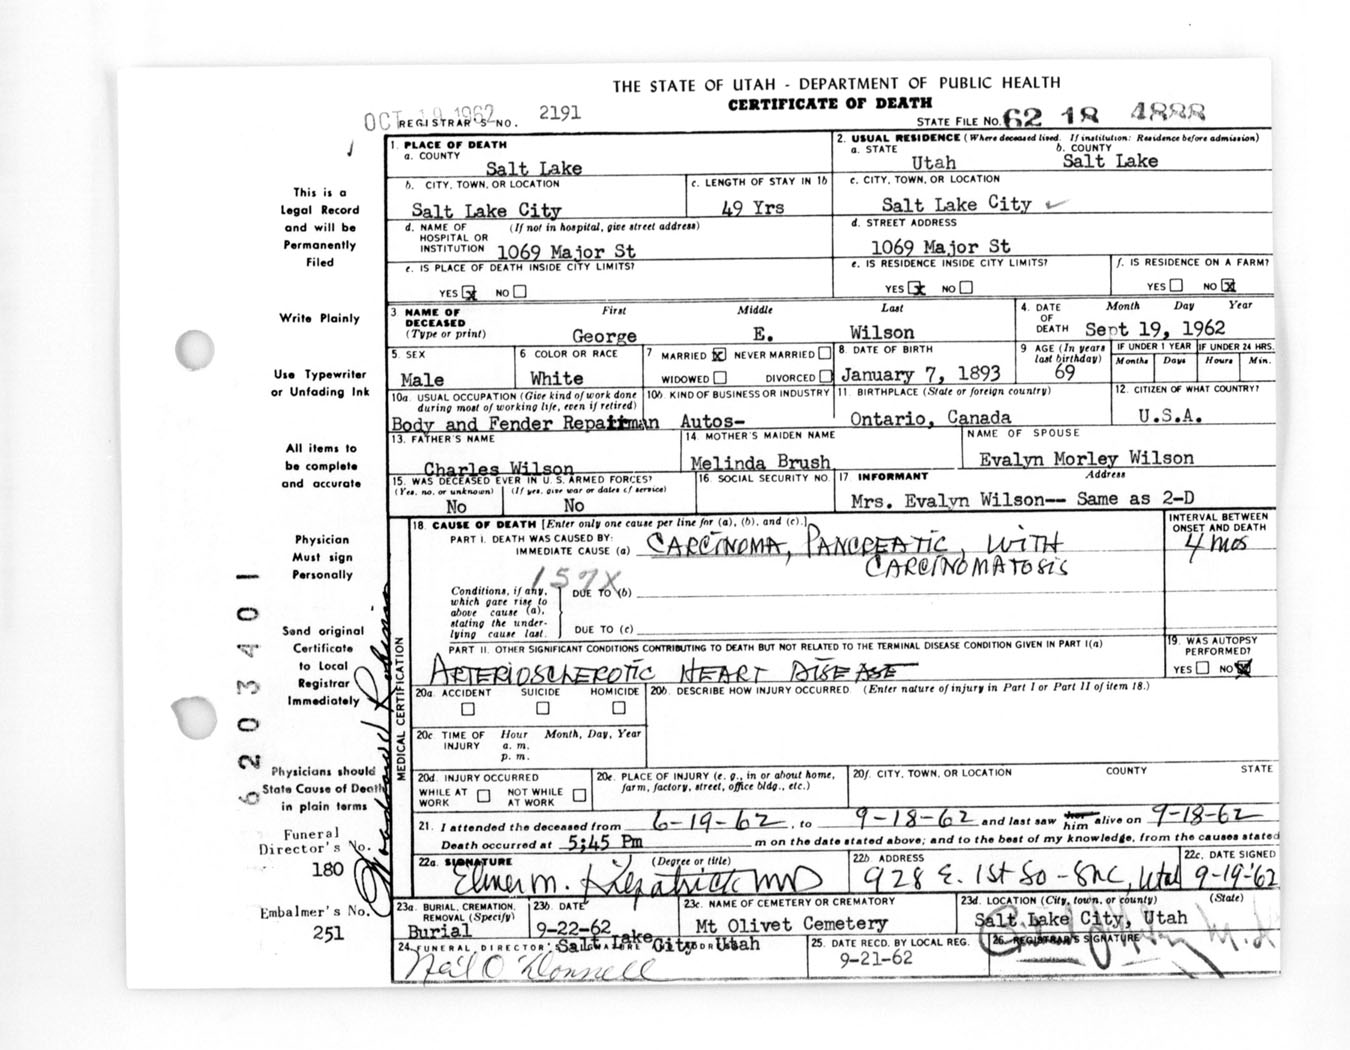 THE STATE OF UTAH - DEPARTMENT OF PUBLIC HEALTH
CERTIFICATE OF DEATH
OCT 19 1962
REGISTRAR'S NO. 2191
STATE FILE NO. 62 18 4888
This is a
Legal Record
and will be
Permanently
Filed
Write Plainly
Use Typewriter
or Unfading Ink
All items to
be complete
and accurate
Physician
Must sign
Personally
Send original
Certificate
to Local
Registrar
Immediately
Physicians should
State Cause of Death
in plain terms
Funeral
Director's No.
180
Embalmer's No.
251
6203401
1. PLACE OF DEATH
a. COUNTY
Salt Lake
2. USUAL RESIDENCE (Where deceased lived. If institution: Residence before admission)
a. STATE b. COUNTY
Utah Salt Lake
b. CITY, TOWN, OR LOCATION
Salt Lake City
c. LENGTH OF STAY IN 1b
49 Yrs
c. CITY, TOWN, OR LOCATION
Salt Lake City ✓
d. NAME OF (If not in hospital, give street address)
HOSPITAL OR
INSTITUTION 1069 Major St
d. STREET ADDRESS
1069 Major St
e. IS PLACE OF DEATH INSIDE CITY LIMITS?
YES x NO
e. IS RESIDENCE INSIDE CITY LIMITS?
YES x NO
f. IS RESIDENCE ON A FARM?
YES NO x
3 NAME OF
DECEASED
(Type or print)
First Middle Last
George E. Wilson
4. DATE
OF
DEATH
Month Day Year
Sept 19, 1962
5. SEX
Male
6 COLOR OR RACE
White
7 MARRIED x NEVER MARRIED
WIDOWED DIVORCED
8. DATE OF BIRTH
January 7, 1893
9 AGE (In years
last birthday)
69
IF UNDER 1 YEAR IF UNDER 24 HRS.
Months Days Hours Min.
10a. USUAL OCCUPATION (Give kind of work done
during most of working life, even if retired)
Body and Fender Repairman
10b KIND OF BUSINESS OR INDUSTRY
Autos-
11. BIRTHPLACE (State or foreign country)
Ontario, Canada
12. CITIZEN OF WHAT COUNTRY?
U.S.A.
13. FATHER'S NAME
Charles Wilson
14 MOTHER'S MAIDEN NAME
Melinda Brush
NAME OF SPOUSE
Evalyn Morley Wilson
15. WAS DECEASED EVER IN U. S. ARMED FORCES?
(Yes, no, or unknown) (If yes, give war or dates of service)
No No
16. SOCIAL SECURITY NO.
17 INFORMANT Address
Mrs. Evalyn Wilson-- Same as 2-D
MEDICAL CERTIFICATION
18. CAUSE OF DEATH [Enter only one cause per line for (a), (b), and (c).]
PART I. DEATH WAS CAUSED BY:
IMMEDIATE CAUSE (a) CARCINOMA, PANCREATIC, WITH
CARCINOMATOSIS
INTERVAL BETWEEN
ONSET AND DEATH
4 mos
157X
Conditions, if any,
which gave rise to
above cause (a),
stating the under-
lying cause last.
DUE TO (b)
DUE TO (c)
PART II. OTHER SIGNIFICANT CONDITIONS CONTRIBUTING TO DEATH BUT NOT RELATED TO THE TERMINAL DISEASE CONDITION GIVEN IN PART I(a)
ARTERIOSCLEROTIC HEART DISEASE
19. WAS AUTOPSY
PERFORMED?
YES NO x
20a. ACCIDENT SUICIDE HOMICIDE
20b. DESCRIBE HOW INJURY OCCURRED. (Enter nature of injury in Part I or Part II of item 18.)
20c TIME OF Hour Month, Day, Year
INJURY a. m.
p. m.
20d. INJURY OCCURRED
WHILE AT NOT WHILE
WORK AT WORK
20e. PLACE OF INJURY (e. g., in or about home,
farm, factory, street, office bldg., etc.)
20f. CITY, TOWN, OR LOCATION COUNTY STATE
21. I attended the deceased from 6-19-62, to 9-18-62 and last saw her him alive on 9-18-62
Death occurred at 5:45 Pm m on the date stated above; and to the best of my knowledge, from the causes stated
22a. SIGNATURE (Degree or title)
Elmer M. Kilpatrick MD
22b. ADDRESS
928 E. 1st So - SLC, Utah
22c. DATE SIGNED
9-19-'62
23a. BURIAL, CREMATION,
REMOVAL (Specify)
Burial
23b. DATE
9-22-62
23c. NAME OF CEMETERY OR CREMATORY
Mt Olivet Cemetery
23d. LOCATION (City, town, or county) (State)
Salt Lake City, Utah
24. FUNERAL DIRECTOR'S SIGNATURE ADDRESS
Salt Lake City Utah
Neil O'Donnell
25. DATE RECD. BY LOCAL REG.
9-21-62
26. REGISTRAR'S SIGNATURE